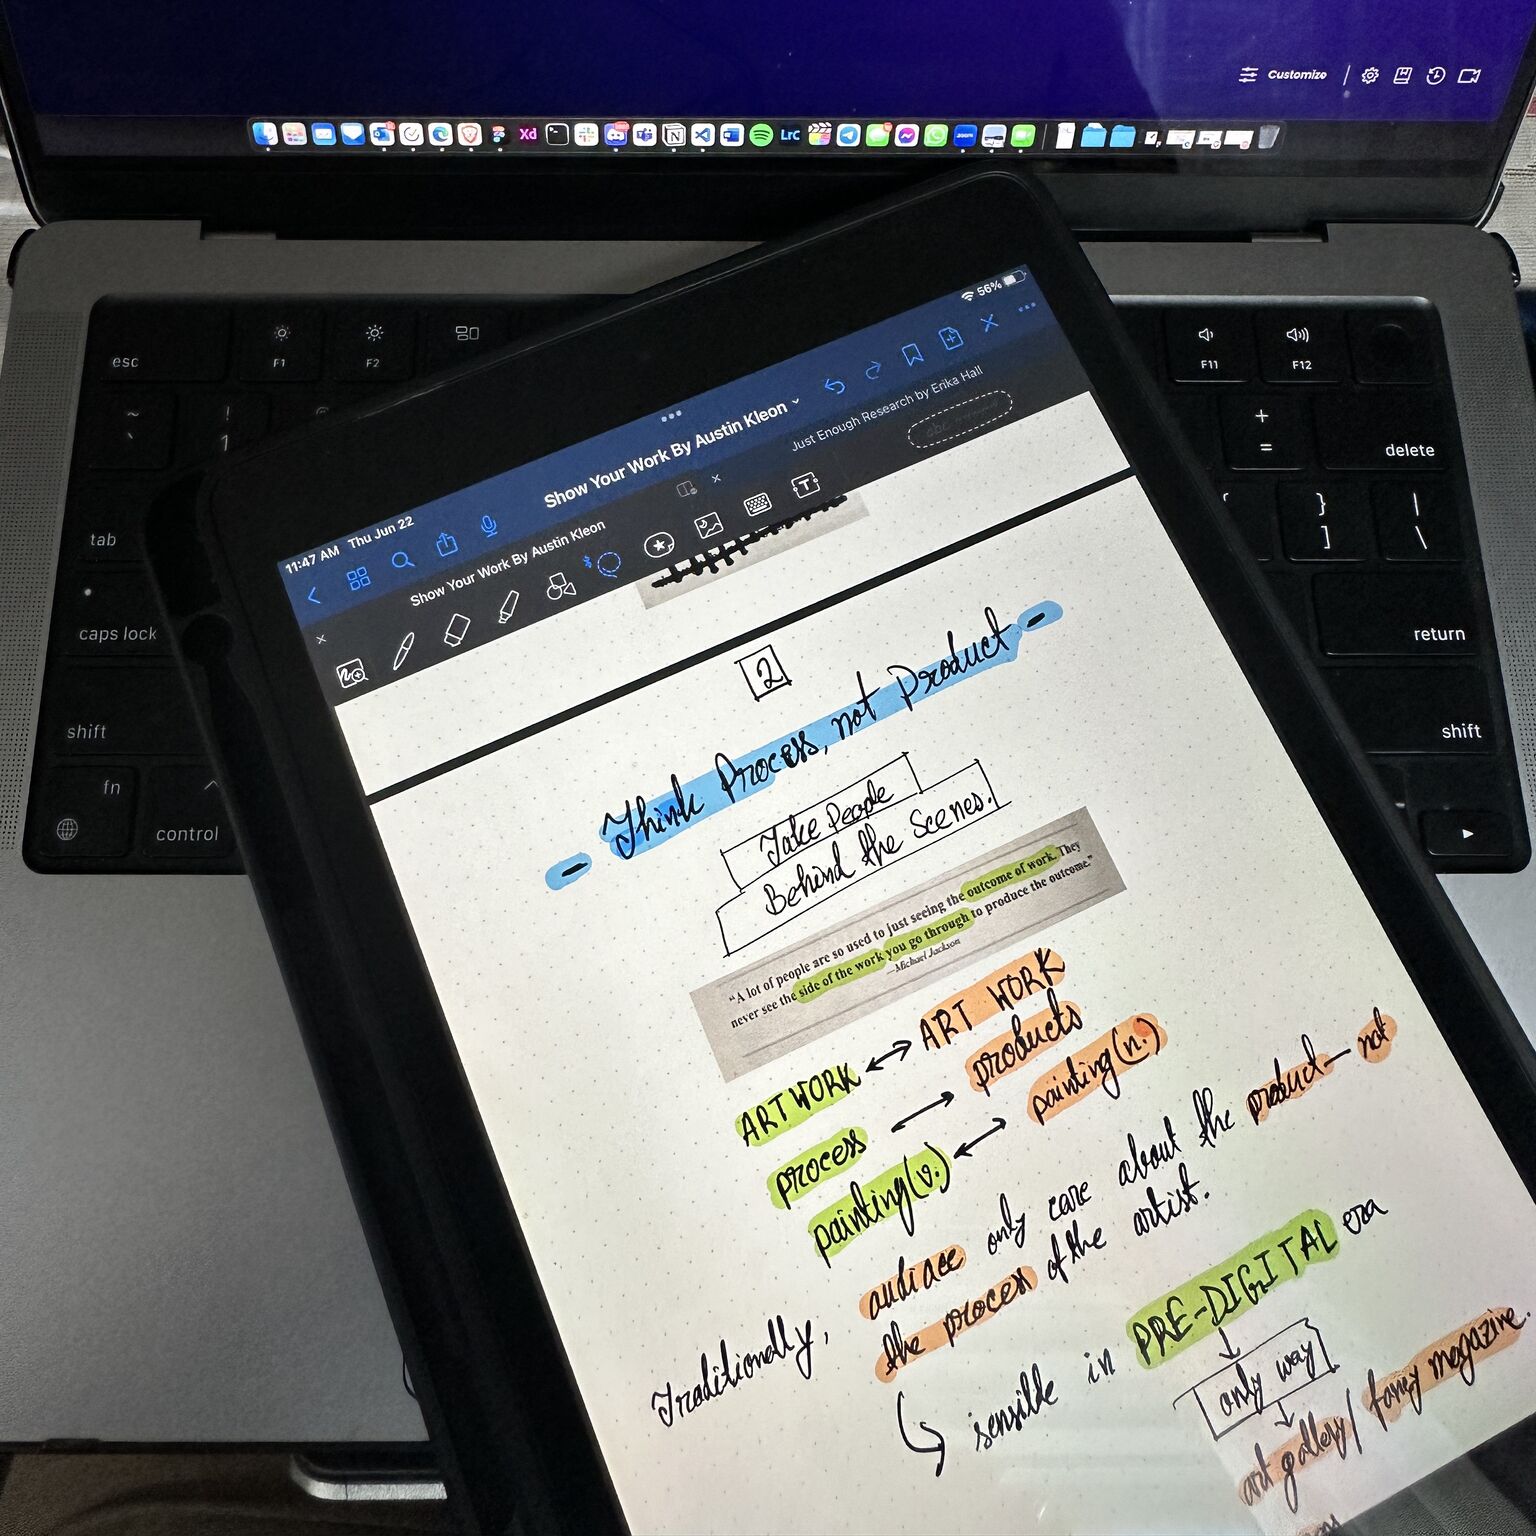 Customize
Xd
LrC
zoom
esc
F1
F2
F11
F12
~
`
!
1
+
=
delete
tab
}
]
|
\
caps lock
return
shift
shift
fn
control
11:47 AM Thu Jun 22
56%
Show Your Work By Austin Kleon
Show Your Work By Austin Kleon
Just Enough Research by Erika Hall
2
- Think Process, not Product -
Take People
Behind the Scenes.
“A lot of people are so used to just seeing the outcome of work. They
never see the side of the work you go through to produce the outcome.”
—Michael Jackson
ARTWORK ↔ ART WORK
process → products
painting(v.) ↔ painting(n.)
Traditionally, audiace only care about the product — not
the process of the artist.
sensible in PRE-DIGITAL era
only way
art gallery/ fancy magazine.